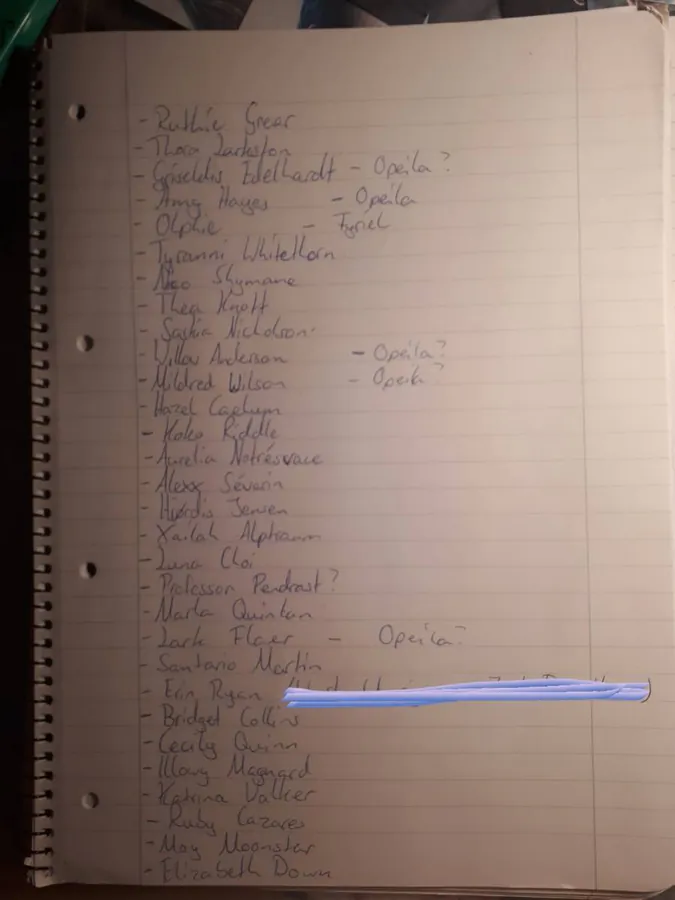 - Ruthie Greer
- Thora Larkston
- Griseldis Edelhardt - Opeila?
- Amy Hayes - Opeila
- Olphie - Fyriel
- Tyranni Whitethorn
- Shymane
- Thea Knott
- Saskia Nicholson
- Willow Anderson - Opeila?
- Mildred Wilson - Opeila?
- Hazel
- Koko Riddle
- Aurelia Notrésvace
- Alexx Séverin
- Hjördis Jensen
- Xailah
- Luna Choi
- Professor Pendrast?
- Marla Quinlan
- Lark Flaer - Opeila?
- Santario Martin
- Erin Ryan
- Bridget Collins
- Cecily Quinn
- Illary Magnard
- Katrina Walker
- Ruby Cazares
- May Moonstar
- Elizabeth Down